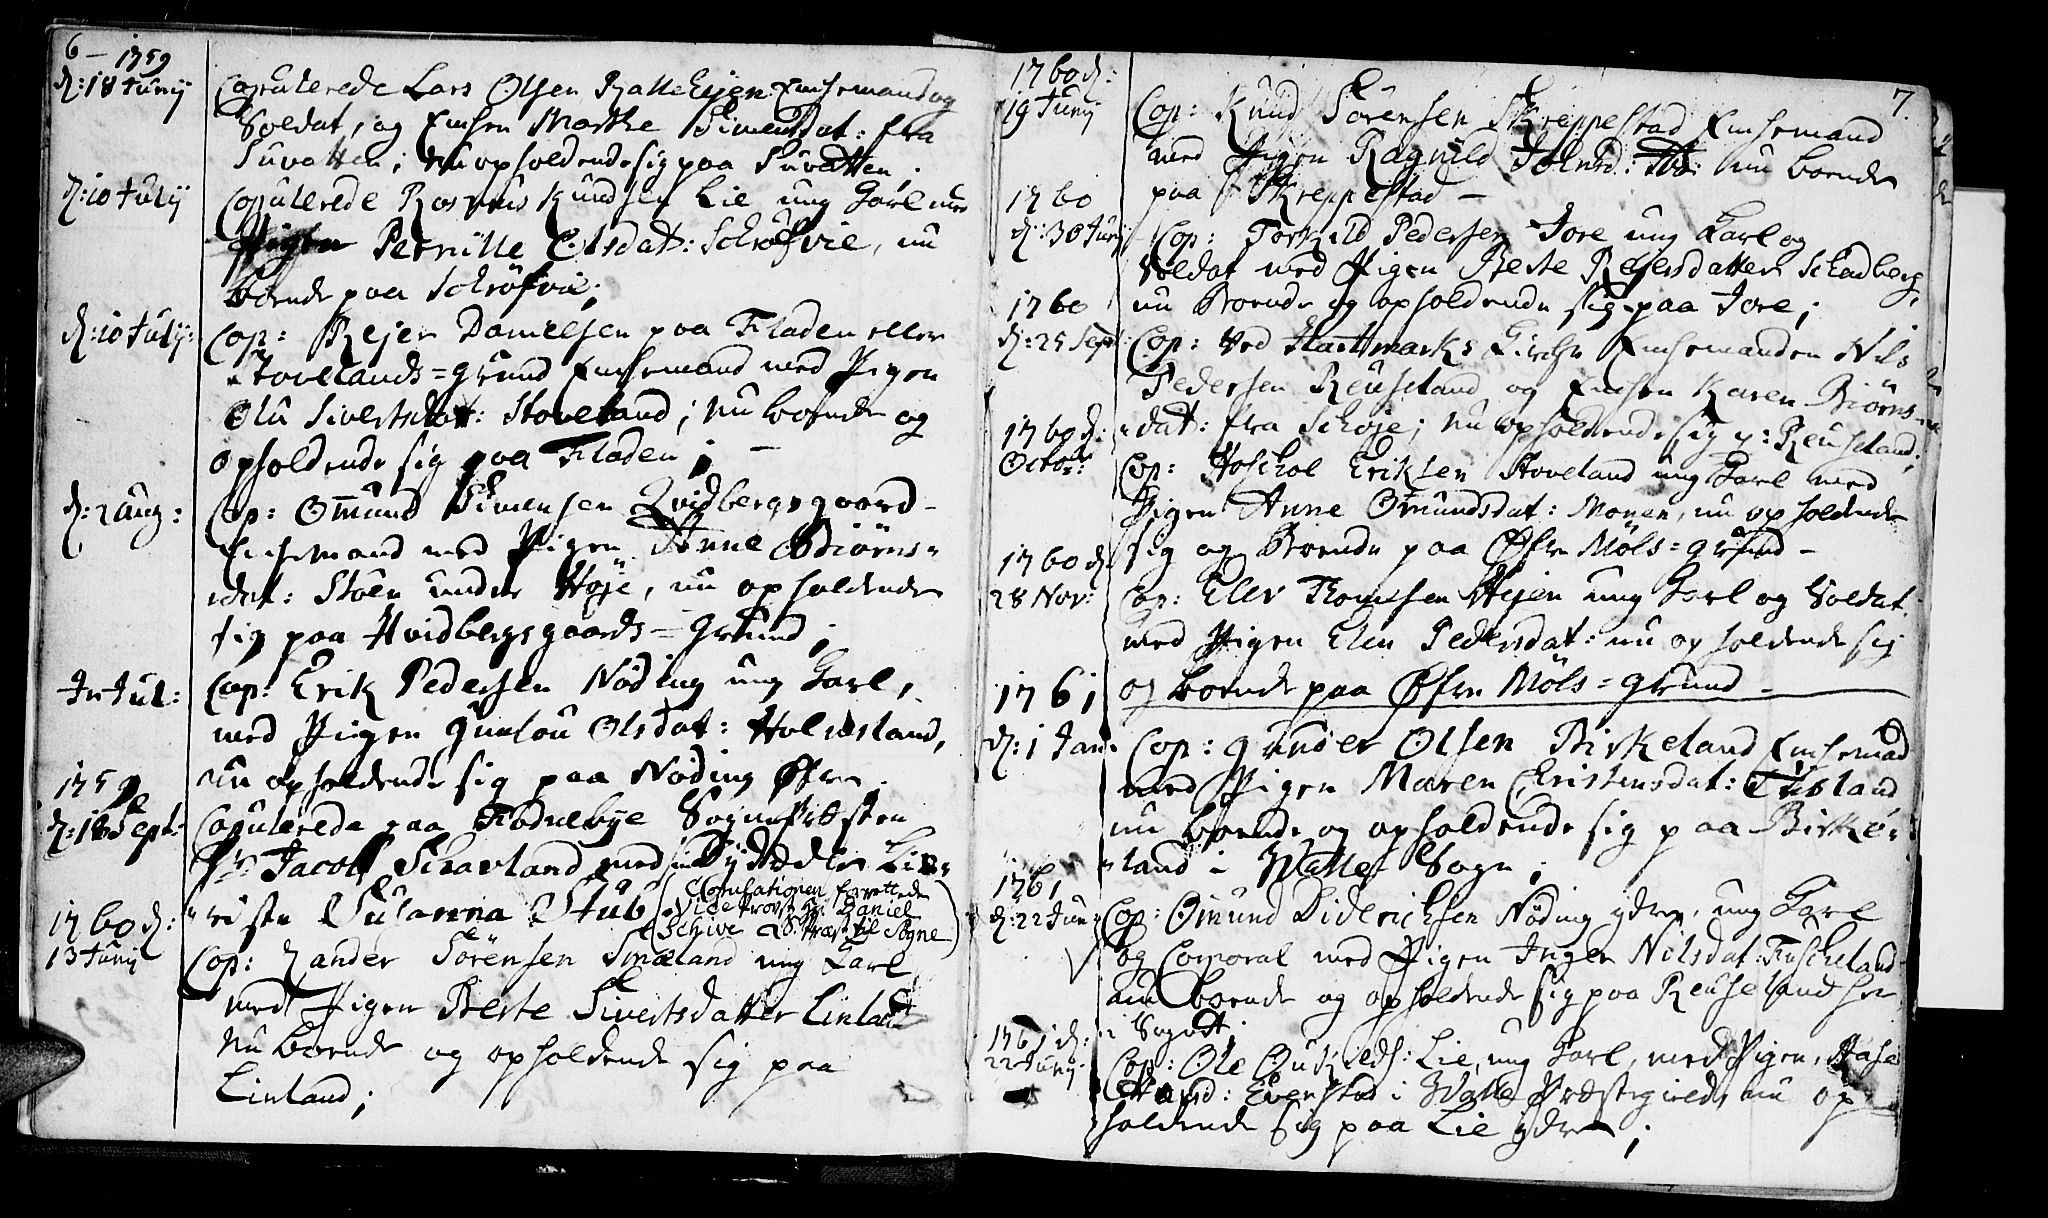 6 – 1759
d: 18 Junij Copulerede Lars Olsen Enchemand og
Soldat, og Enchen Marthe Simensdat: fra
Suvatten; nu opholdende sig paa Suvatten;
d: 10 Julij Copulerede Knudsen Lie ung Karl med
Pigen Pernille Olsdat: Schrøfvie, nu
boende paa Schrøfvie;
d: 10 Julij: Cop: Rejer Danielsen paa Fladen eller
Stovelands=grund Enchemand med Pigen
Olu Sivertsdat: Stoveland; nu boende og
opholdende sig paa Fladen; –
d: 2 Aug: Cop: Omund Simensen Qvidbergsgaard
Enchemand med Pigen Anne Biörns-
dat: Stöen under Höje, nu opholdende
sig paa Hvidbergsgaards=grund;
In Jul: Cop: Erik Pedersen Nöding ung Karl,
med Pigen Gunlou Olsdat: Holmsland,
nu opholdende sig paa Nöding Øfre.
1759
d: 18 Sept: Copulerede paa Sogneprästen
Hr Jacob Schavland med
Susanna Stub (Copulationen forrettede
Vice Provst Hr: Daniel
Schive S: Præst til Sogne)
1760 d:
13 Junij Cop: Zander Sörensen Småland ung Karl
med Pigen Berte Sivertsdatter Linland
nu boende og opholdende sig paa
Linland;
7.
1760 d:
19 Junij Cop: Knud Sörensen Skreppestad Enchemand
med Pigen Ragnild nu boende
paa Skreppestad –
1760
d: 30 Junij Cop: Torkild Pedersen Jore ung Karl og
Soldat med Pigen Berte Rejersdatter Schadberg,
nu Boende og opholdende sig paa Jore;
1760
d: 25 Sept: Cop: ved Hartmarks Kirche Enchemanden Nils
Pedersen Reuseland og Enchen Karen Biörns-
dat: fra Schöje; nu opholdende sig p: Reuseland;
1760 d:
Octobr: Cop: Hoschol Eriksen Stoveland ung Karl med
Pigen Anne Omundsdat: Monen, nu opholdende
sig og Boende paa Øfre Möls=grund –
1760 d.
28 Nov: Cop: Elev Thomesen Stejen ung Karl og Soldat
med Pigen Elen Pedersdat: nu opholdende sig
og boende paa Øfre Möls=grund –
1761
d: 1 Jan: Cop: Gunder Olsen Birkeland Enchemand
med Pigen Maren Christensdat:
nu boende og opholdende sig paa Birke-
land i Halle Sogn;
1761
d: 22 Jun: Cop: Omund Diderichsen Nöding ydre, ung Karl
og Corporal med Pigen Inger Nilsdat: Fuscheland
nu boende og opholdende sig paa Reuseland her
i Sognet;
1761 d:
22 Junij Cop: Ole Lie, ung Karl, med Pigen, Aase
Evenstad i Halle Præstegield, nu op-
holdende sig paa Lie ydre;